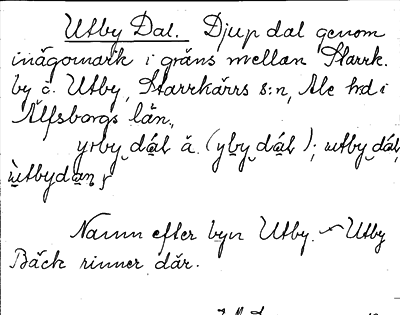 Utby Dal. Djup dal genom
inägomark i gräns mellan Starrk.
by o. Utby, Starrkärrs s:n, Ale hd i
Älfsborgs län,
yrby dál å (yby dál); utby dál,
ùtbydan
Namn efter byn Utby. Utby
Bäck rinner där.